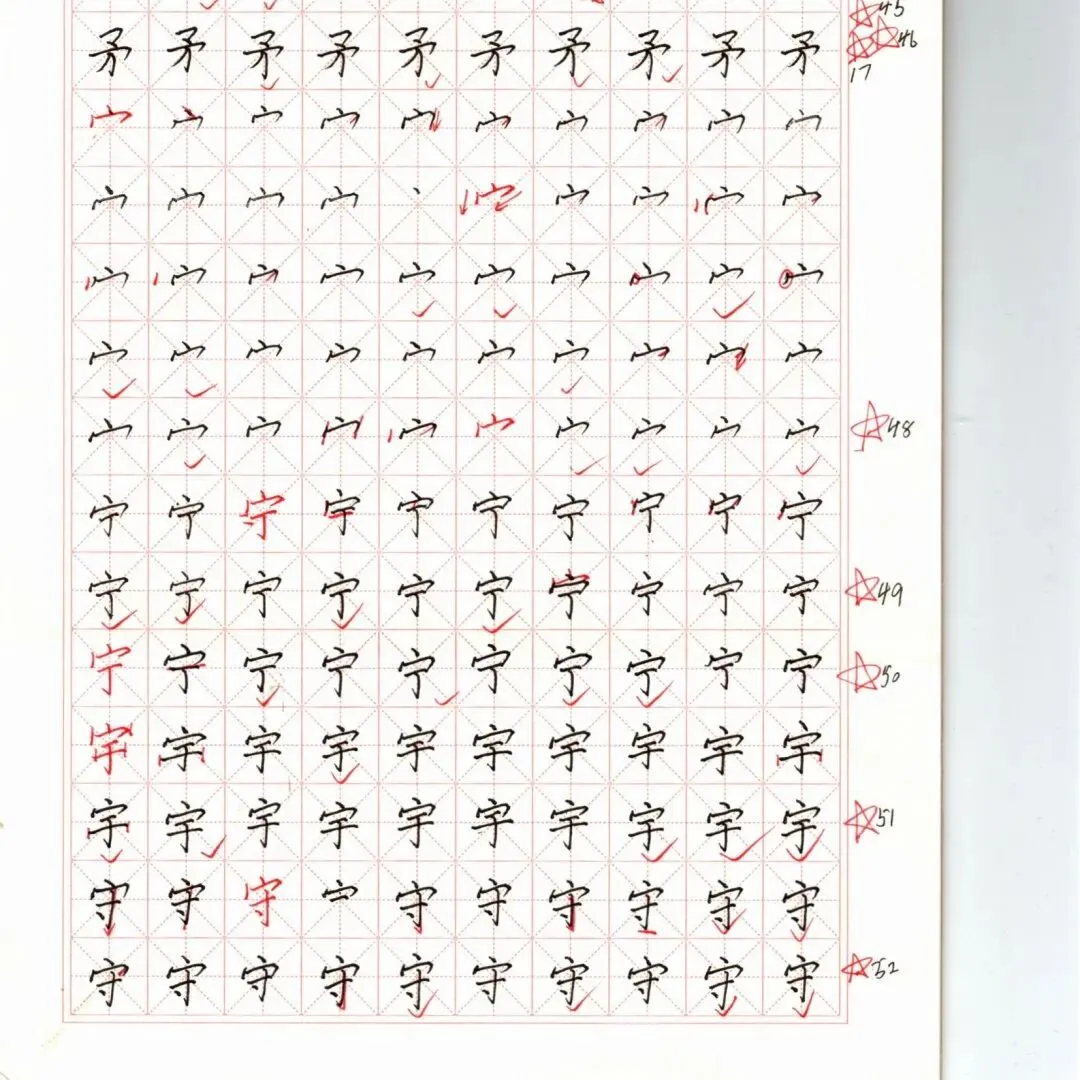 ☆45
矛 矛 矛 矛 矛 矛 矛 矛 矛 矛 ☆☆46
17
宀 宀 宀 宀 宀 宀 宀 宀 宀 宀
宀 宀 宀 宀 丶 宀 宀 宀 宀 宀
宀 宀 宀 宀 宀 宀 宀 宀 宀 宀
宀 宀 宀 宀 宀 宀 宀 宀 宀 宀
宀 宀 宀 宀 宀 宀 宀 宀 宀 宀 ☆48
宁 宁 宁 宁 宁 宁 宁 宁 宁 宁
宁 宁 宁 宁 宁 宁 宁 宁 宁 宁 ☆49
宁 宁 宁 宁 宁 宁 宁 宁 宁 宁 ☆50
宇 宇 宇 宇 宇 宇 宇 宇 宇 宇
宇 宇 宇 宇 宇 宇 宇 宇 宇 宇 ☆51
守 守 守 守 守 守 守 守 守
守 守 守 守 守 守 守 守 守 守 ☆52